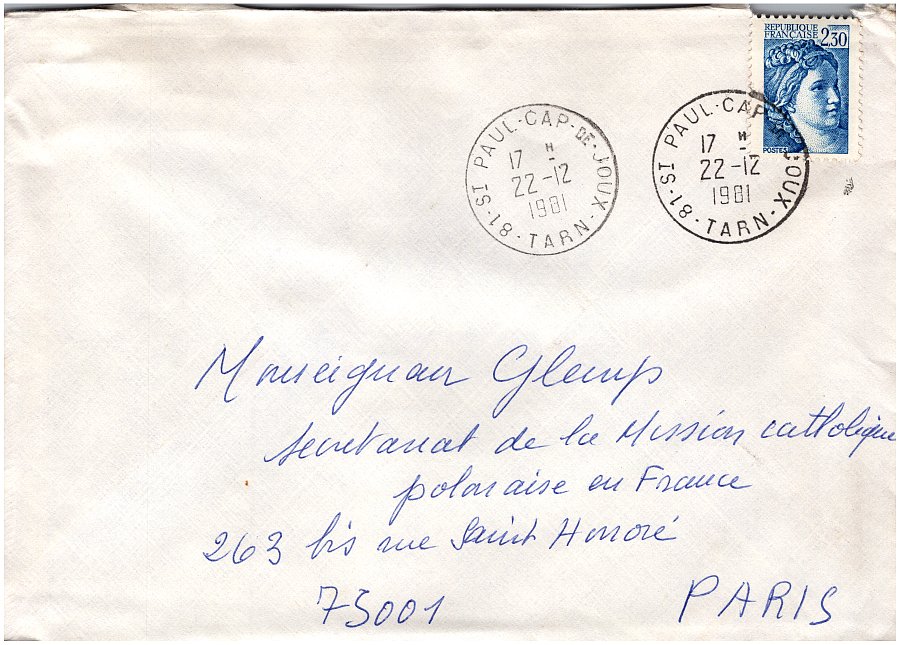 REPUBLIQUE
FRANÇAISE 2,30
POSTES
81-ST PAUL-CAP-DE-JOUX
17 H
22-12
1981
TARN
81-ST PAUL-CAP-DE-JOUX
17 H
22-12
1981
TARN
Monseigneur Glemp
secretariat de la Mission catholique
polonaise en France
263 bis rue Saint Honoré
75001 PARIS